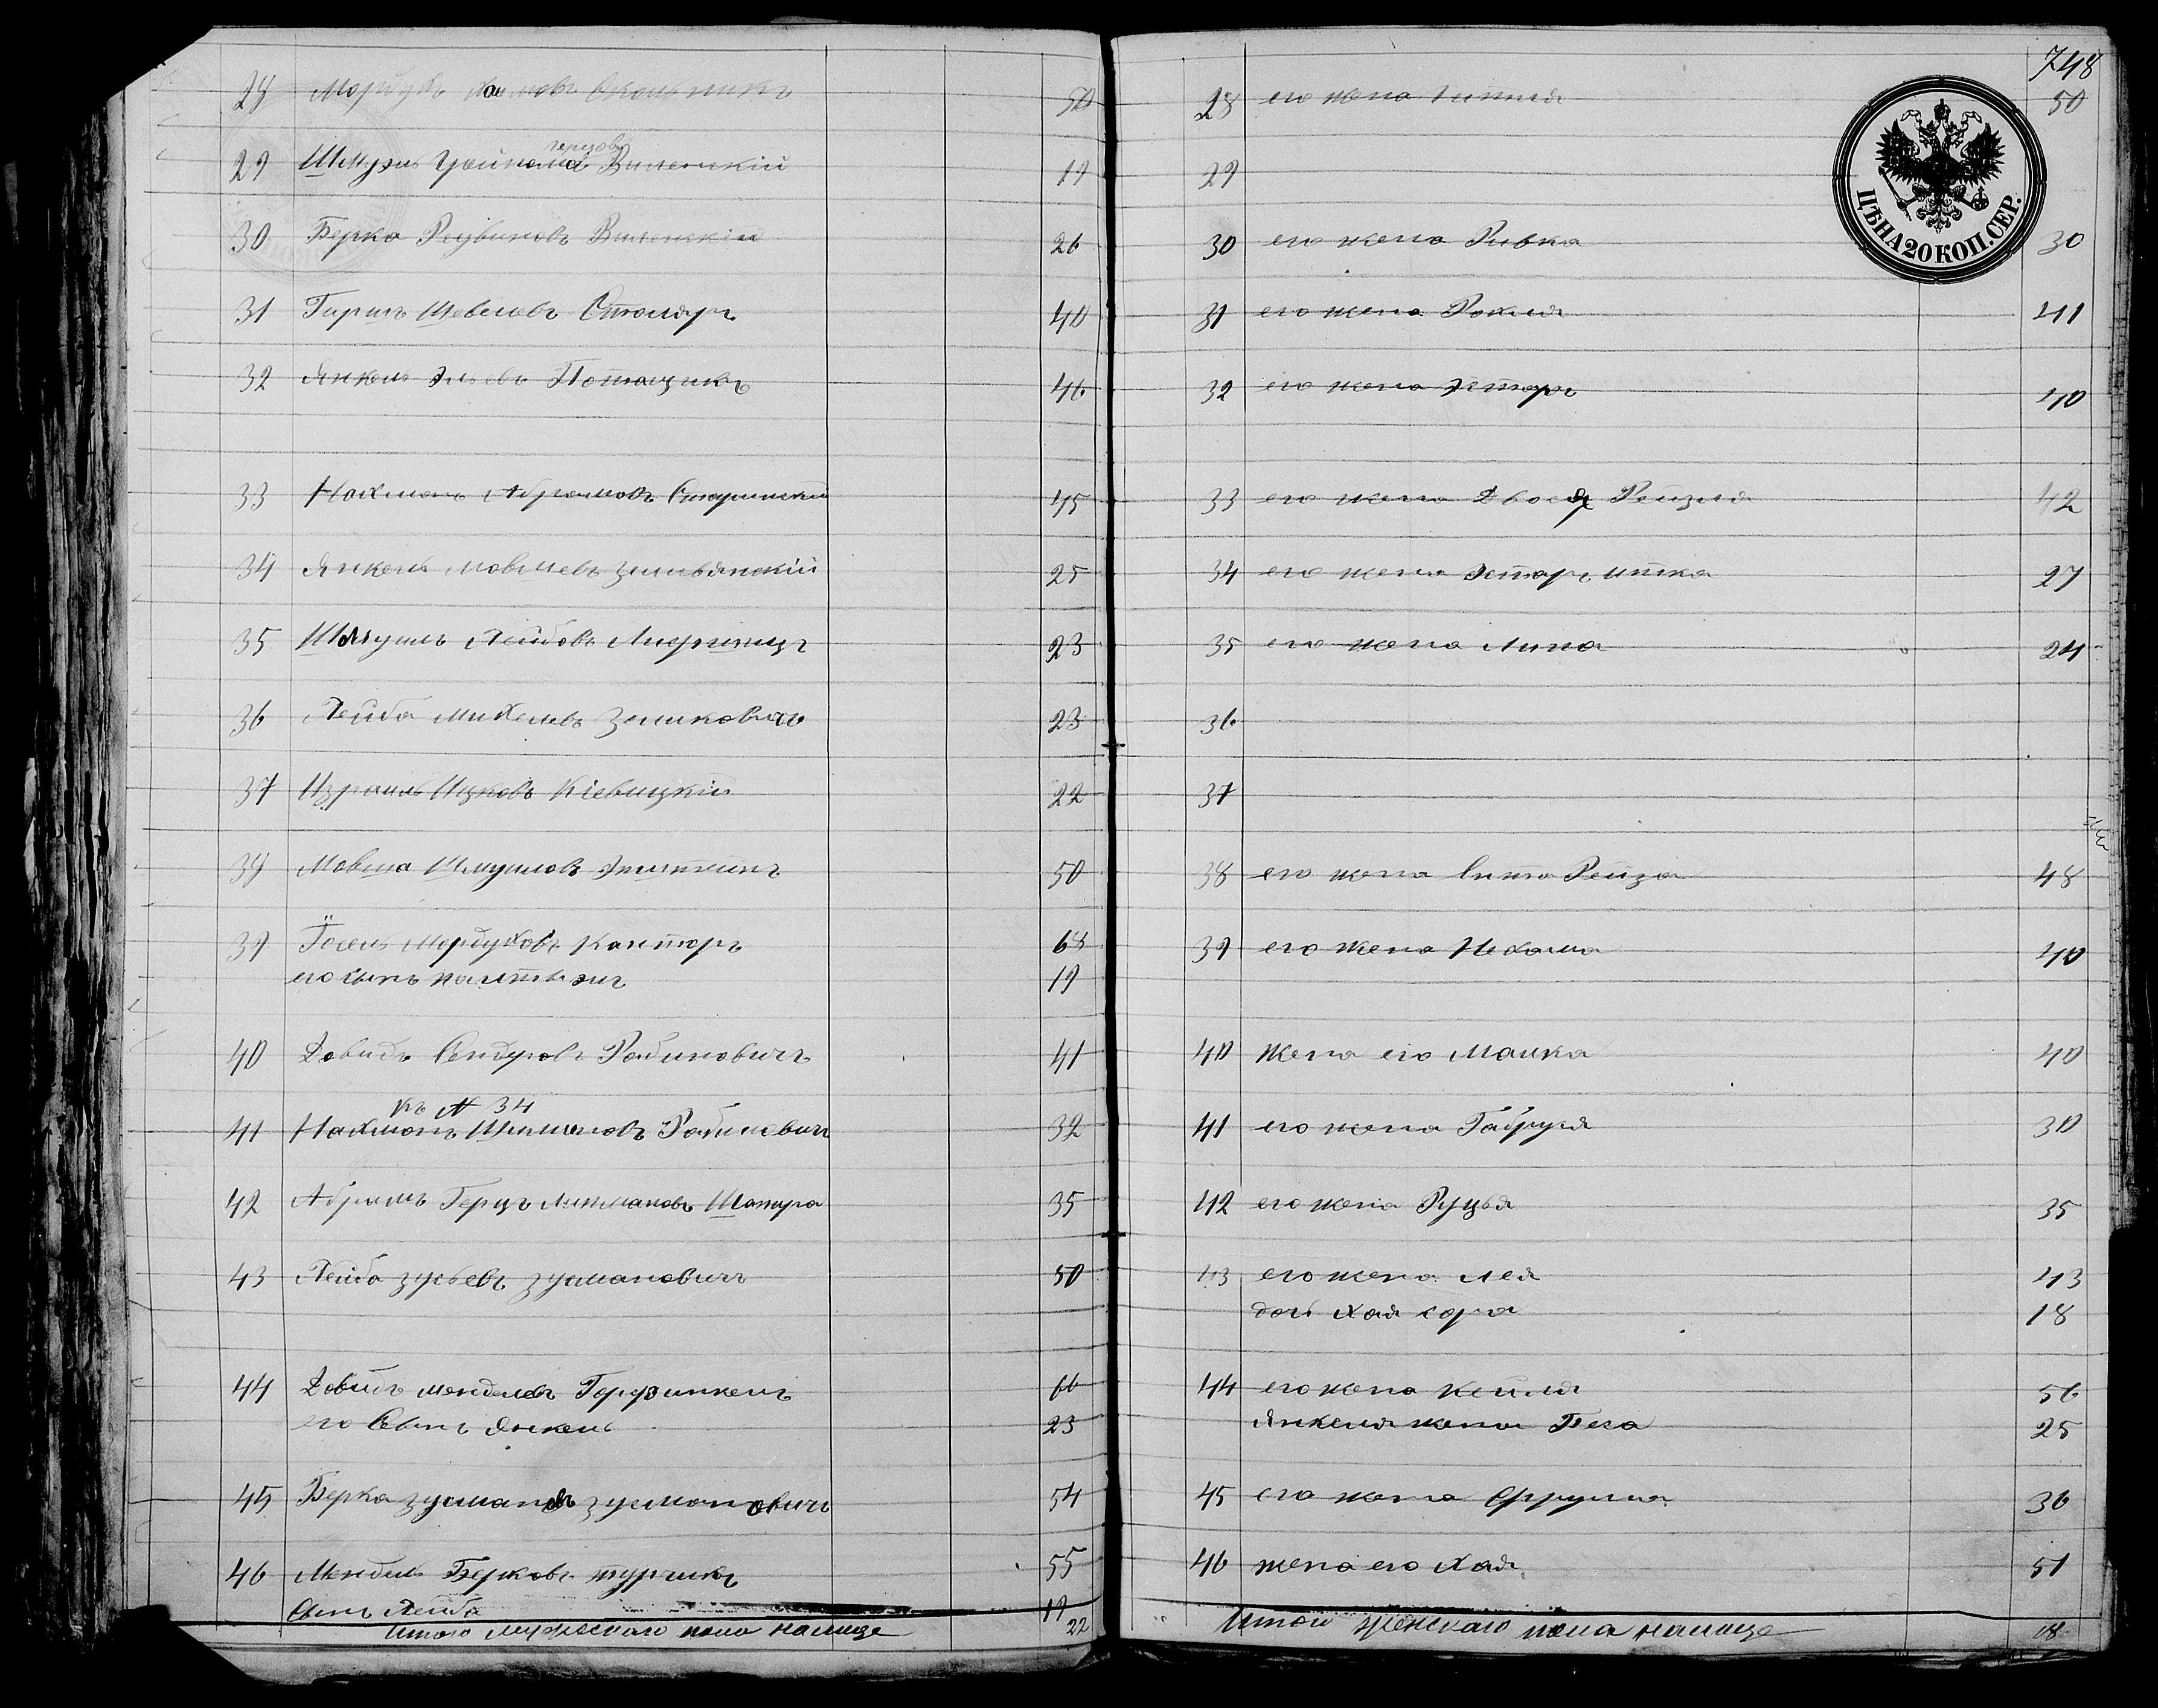 28 Мордухъ Хаимовъ 50
Герцовъ
29 Шмуэль Виленскій 19
30 Берка Реувиновъ Виленскій 26
31 Гиршъ Шевелевъ Столяръ 40
32 Янкель Эльевъ Поташникъ 46
33 Нахманъ Абрамовъ 45
34 Янкель Мовшевъ Зельвянскій 25
35 Шмуилъ Лейбовъ 23
36 Лейба Михелевъ Зеликовичъ 23
37 Израиль Ицковъ Кіевицкій 22
38 Мовша Шмуиловъ 50
39 Іосель Мордуховъ Канторъ 68
его сынъ 19
40 Довидъ Сендеровъ Рабиновичъ 41
къ № 34
41 Нахманъ Шлиомовъ Рабиновичъ 32
42 Абрамъ Герцъ Литмановъ Шапиро 35
43 Лейба Зусьевъ Зусмановичъ 50
44 Довидъ Менделевъ 66
его Сынъ Янкель 23
45 Берка Зусмановъ Зусмановичъ 54
46 Мендель Берковъ 55
Сынъ Лейба 19
Итого мужескаго пола налице 22
748
28 его жена 50
29
30 его жена Ривка 30
31 его жена Рохля 41
32 его жена Эстеръ 40
33 его жена Двося Рейзля 42
34 его жена Эстеръ Итка 27
35 его жена Лина 24
36
37
38 его жена Рейза 48
39 его жена Нехама 40
40 жена его Малка 40
41 его жена Габруся 30
42 его жена 35
43 его жена Лея 43
дочь Хая Сора 18
44 его жена Кейля 56
Янкеля жена 25
45 его жена Фрума 36
46 жена его Хая 51
Итого женскаго пола налице 18
ЦѢНА 20 КОП. СЕР.